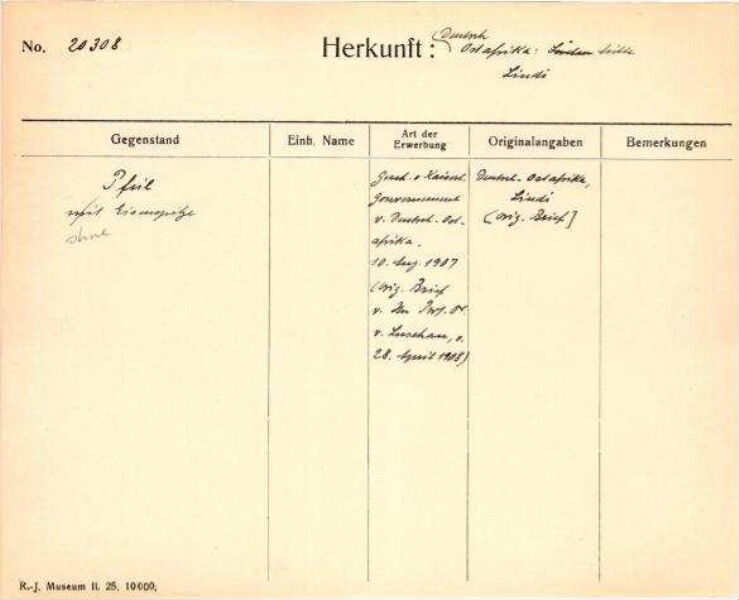 No. 20308
Herkunft: (Deutsch
Ostafrika:
Lindi
Gegenstand
Einh. Name
Art der
Erwerbung
Originalangaben
Bemerkungen
Pfeil
mit Eisenspitze
ohne
Gesch. v. Kaiserl.
Gouvernement
v. Deutsch-Ost-
afrika.
10. Aug. 1907
(Orig. Brief
v. Hn Prof. Dr.
v. Luschan, v.
28. April 1908)
Deutsch-Ostafrika,
Lindi
(Orig. Brief]
R.-J. Museum II. 25. 10000;